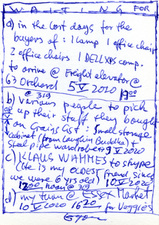 WAITING FOR
a) in the last days for the
buyers of: 1 lamp 1 office chair
2 office chairs 1 DELL XPS comp.
to arrive @ Freight elevator @
63 Orchard 5 V 2010 1900
b) various people to pick
up their stuff they bought
on Craigs list: small storage
cabinet (from Laughing Buddha) &
steel pipe wardrobe 9 V 2010
c) KLAUS WAMMES to skype
(he is my oldest friend since
we were 6 yrs old) 10 V 2010
1200 noon @ 319
d) my train @ ESSEX Market
10 V 2010 1620 in Veggies